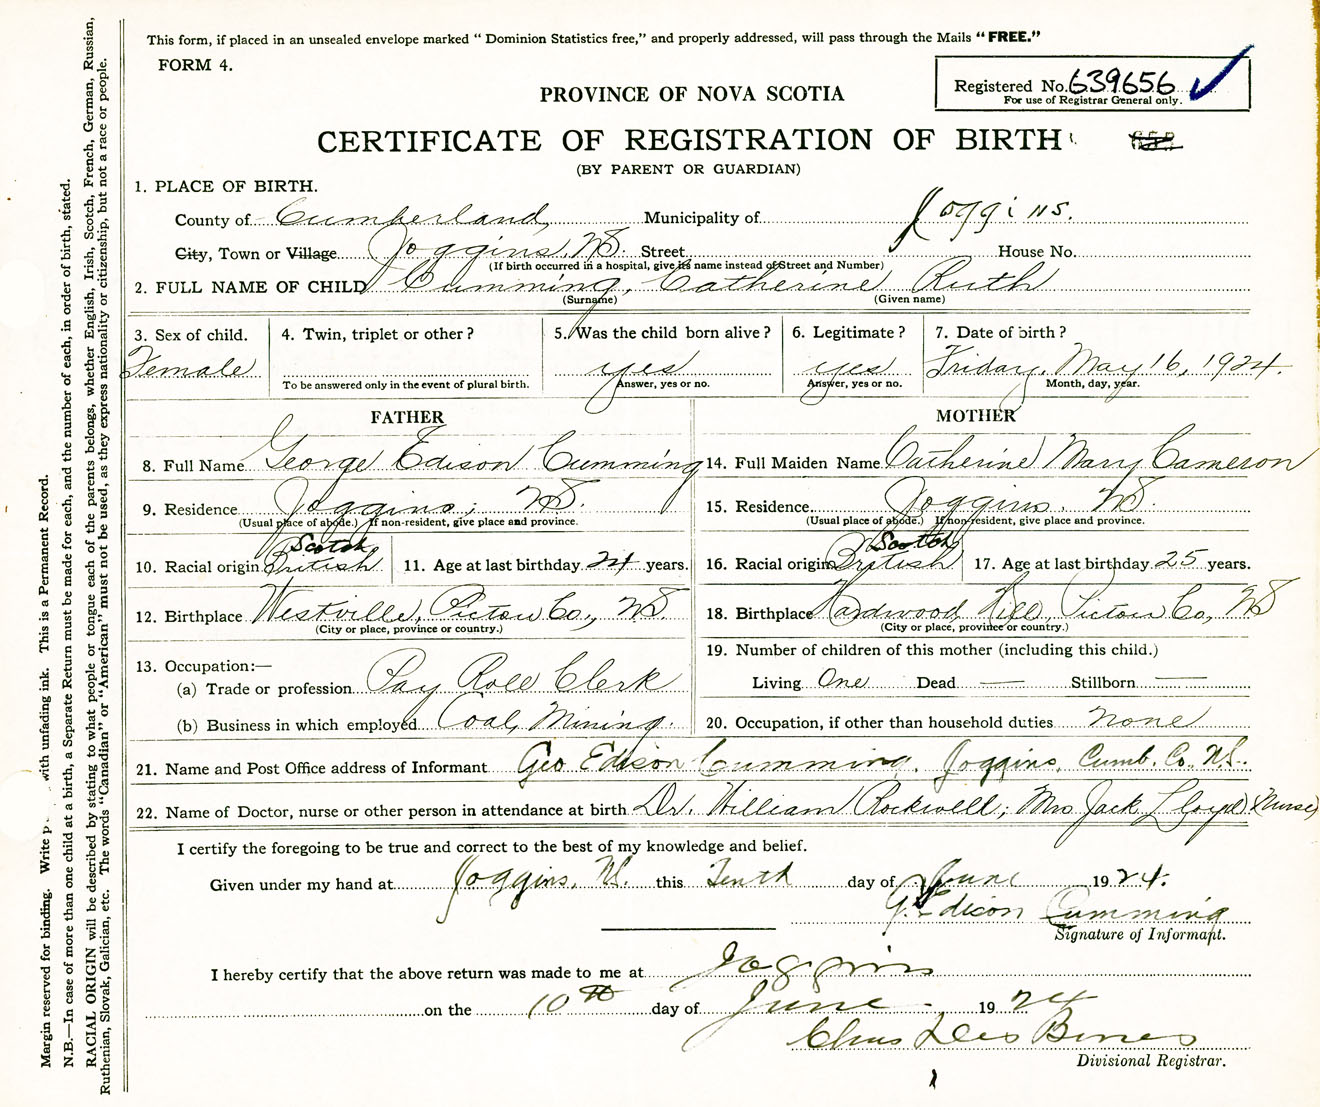 This form, if placed in an unsealed envelope marked “ Dominion Statistics free,” and properly addressed, will pass through the Mails “FREE.”
FORM 4.
Registered No. 639656
For use of Registrar General only.
PROVINCE OF NOVA SCOTIA
CERTIFICATE OF REGISTRATION OF BIRTH
(BY PARENT OR GUARDIAN)
1. PLACE OF BIRTH.
County of Cumberland, Municipality of Joggins.
City, Town or Village Joggins, NS. Street House No.
(If birth occurred in a hospital, give its name instead of Street and Number)
2. FULL NAME OF CHILD Cumming, Catherine Ruth
(Surname) (Given name)
3. Sex of child. 4. Twin, triplet or other ? 5. Was the child born alive ? 6. Legitimate ? 7. Date of birth ?
Female yes yes Friday, May 16, 1924.
To be answered only in the event of plural birth. Answer, yes or no. Answer, yes or no. Month, day, year.
FATHER MOTHER
8. Full Name George Edison Cumming 14. Full Maiden Name Catherine Mary Cameron
9. Residence Joggins, NS. 15. Residence Joggins, NS.
(Usual place of abode.) If non-resident, give place and province. (Usual place of abode.) If non-resident, give place and province.
Scotch Scotch
10. Racial origin British 11. Age at last birthday 24 years. 16. Racial origin British 17. Age at last birthday 25 years.
12. Birthplace Westville, Pictou Co., NS. 18. Birthplace Hardwood Hill, Pictou Co, NS
(City or place, province or country.) (City or place, province or country.)
13. Occupation:— 19. Number of children of this mother (including this child.)
(a) Trade or profession Pay Roll Clerk Living One Dead — Stillborn —
(b) Business in which employed Coal Mining. 20. Occupation, if other than household duties none
21. Name and Post Office address of Informant Geo Edison Cumming, Joggins, Cumb. Co. N.S.
22. Name of Doctor, nurse or other person in attendance at birth Dr. William Rockwell; Mrs Jack Lloyd (Nurse)
I certify the foregoing to be true and correct to the best of my knowledge and belief.
Given under my hand at Joggins, NS. this Tenth day of June 1924.
G. Edison Cumming
Signature of Informant.
I hereby certify that the above return was made to me at Joggins
on the 10th day of June 1924
Chas Des Barres
Divisional Registrar.
Margin reserved for binding. Write with unfading ink. This is a Permanent Record.
N.B.—In case of more than one child at a birth, a Separate Return must be made for each, and the number of each, in order of birth, stated.
RACIAL ORIGIN will be described by stating to what people or tongue each of the parents belongs, whether English, Irish, Scotch, French, German, Russian,
Ruthenian, Slovak, Galician, etc. The words “Canadian” or “American” must not be used, as they express nationality or citizenship, but not a race or people.